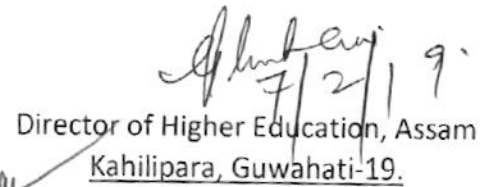 7/2/19.
Director of Higher Education, Assam
Kahilipara, Guwahati-19.